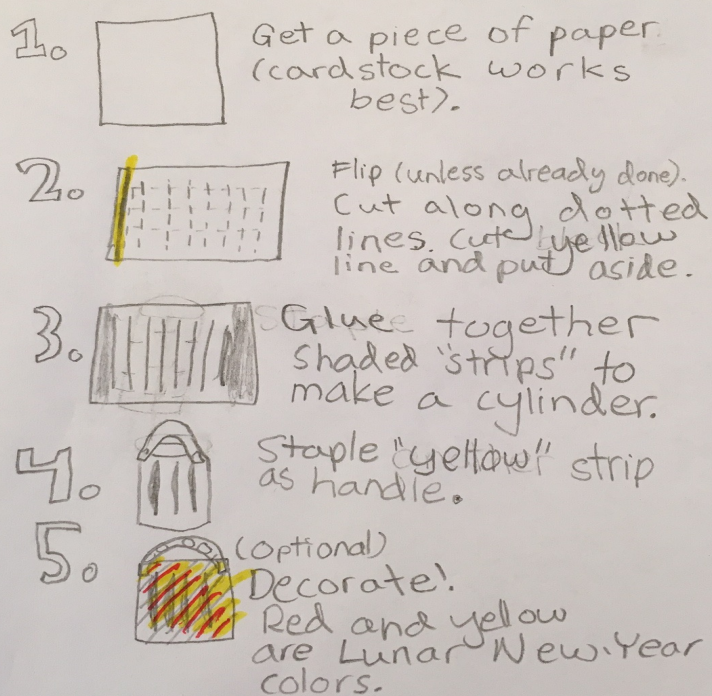 1. Get a piece of paper
(cardstock works
best).
2. Flip (unless already done).
Cut along dotted
lines. Cut yellow
line and put aside.
3. Glue together
shaded "strips" to
make a cylinder.
4. Staple "yellow" strip
as handle.
5. (Optional)
Decorate!
Red and yellow
are Lunar New Year
colors.